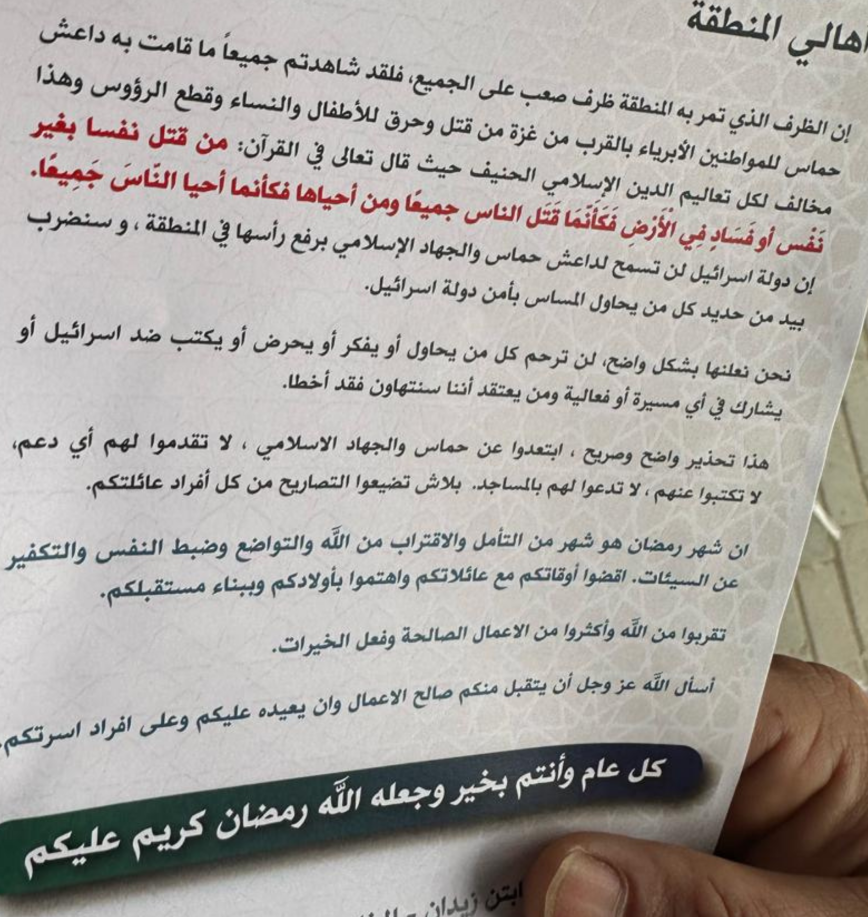 اهالي المنطقة
إن الظرف الذي تمر به المنطقة ظرف صعب على الجميع، فلقد شاهدتم جميعاً ما قامت به داعش
حماس للمواطنين الأبرياء بالقرب من غزة من قتل وحرق للأطفال والنساء وقطع الرؤوس وهذا
مخالف لكل تعاليم الدين الإسلامي الحنيف حيث قال تعالى في القرآن: من قتل نفسا بغير
نَفْس أو فَسَادٍ فِي الْأَرْضِ فَكَأَنَّمَا قَتَل الناس جميعًا ومن أحياها فكأنما أحيا النّاسَ جَمِيعًا.
إن دولة اسرائيل لن تسمح لداعش حماس والجهاد الإسلامي برفع رأسها في المنطقة ، و سنضرب
بيد من حديد كل من يحاول المساس بأمن دولة اسرائيل.
نحن نعلنها بشكل واضح، لن نرحم كل من يحاول أو يفكر أو يحرض أو يكتب ضد اسرائيل أو
يشارك في أي مسيرة أو فعالية ومن يعتقد أننا سنتهاون فقد أخطا.
هذا تحذير واضح وصريح ، ابتعدوا عن حماس والجهاد الاسلامي ، لا تقدموا لهم أي دعم،
لا تكتبوا عنهم ، لا تدعوا لهم بالمساجد. بلاش تضيعوا التصاريح من كل أفراد عائلتكم.
ان شهر رمضان هو شهر من التأمل والاقتراب من الله والتواضع وضبط النفس والتكفير
عن السيئات. اقضوا أوقاتكم مع عائلاتكم واهتموا بأولادكم وببناء مستقبلكم.
تقربوا من الله وأكثروا من الاعمال الصالحة وفعل الخيرات.
أسأل الله عز وجل أن يتقبل منكم صالح الاعمال وان يعيده عليكم وعلى افراد اسرتكم.
كل عام وأنتم بخير وجعله الله رمضان كريم عليكم
ابتن زيدان -